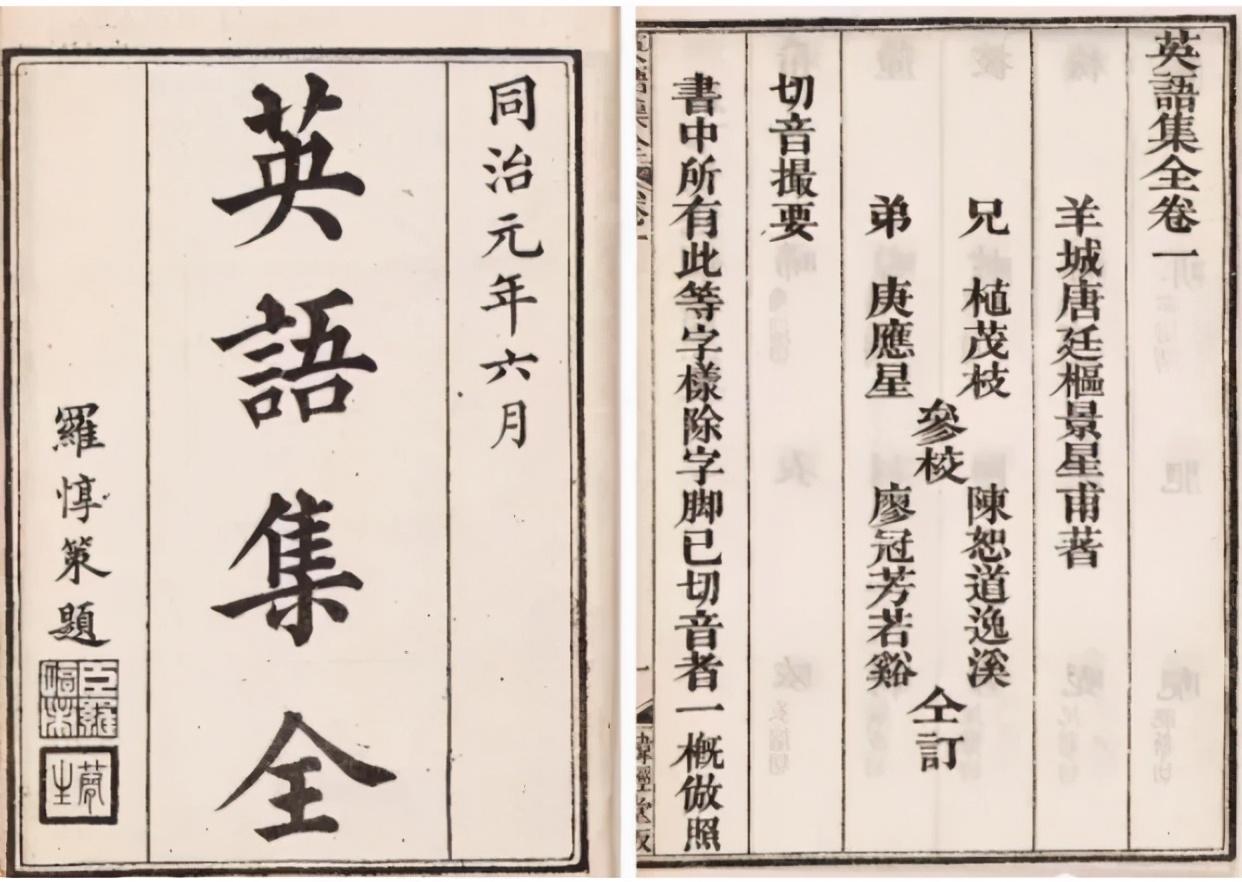 同治元年六月
英語集全
羅惇策題
英語集全卷一
羊城唐廷樞景星甫著
兄 植茂枝
弟 庚應星
參校
陳恕道逸溪
廖冠芳若谿
仝訂
切音撮要
書中所有此等字樣除字脚已切音者一概倣照